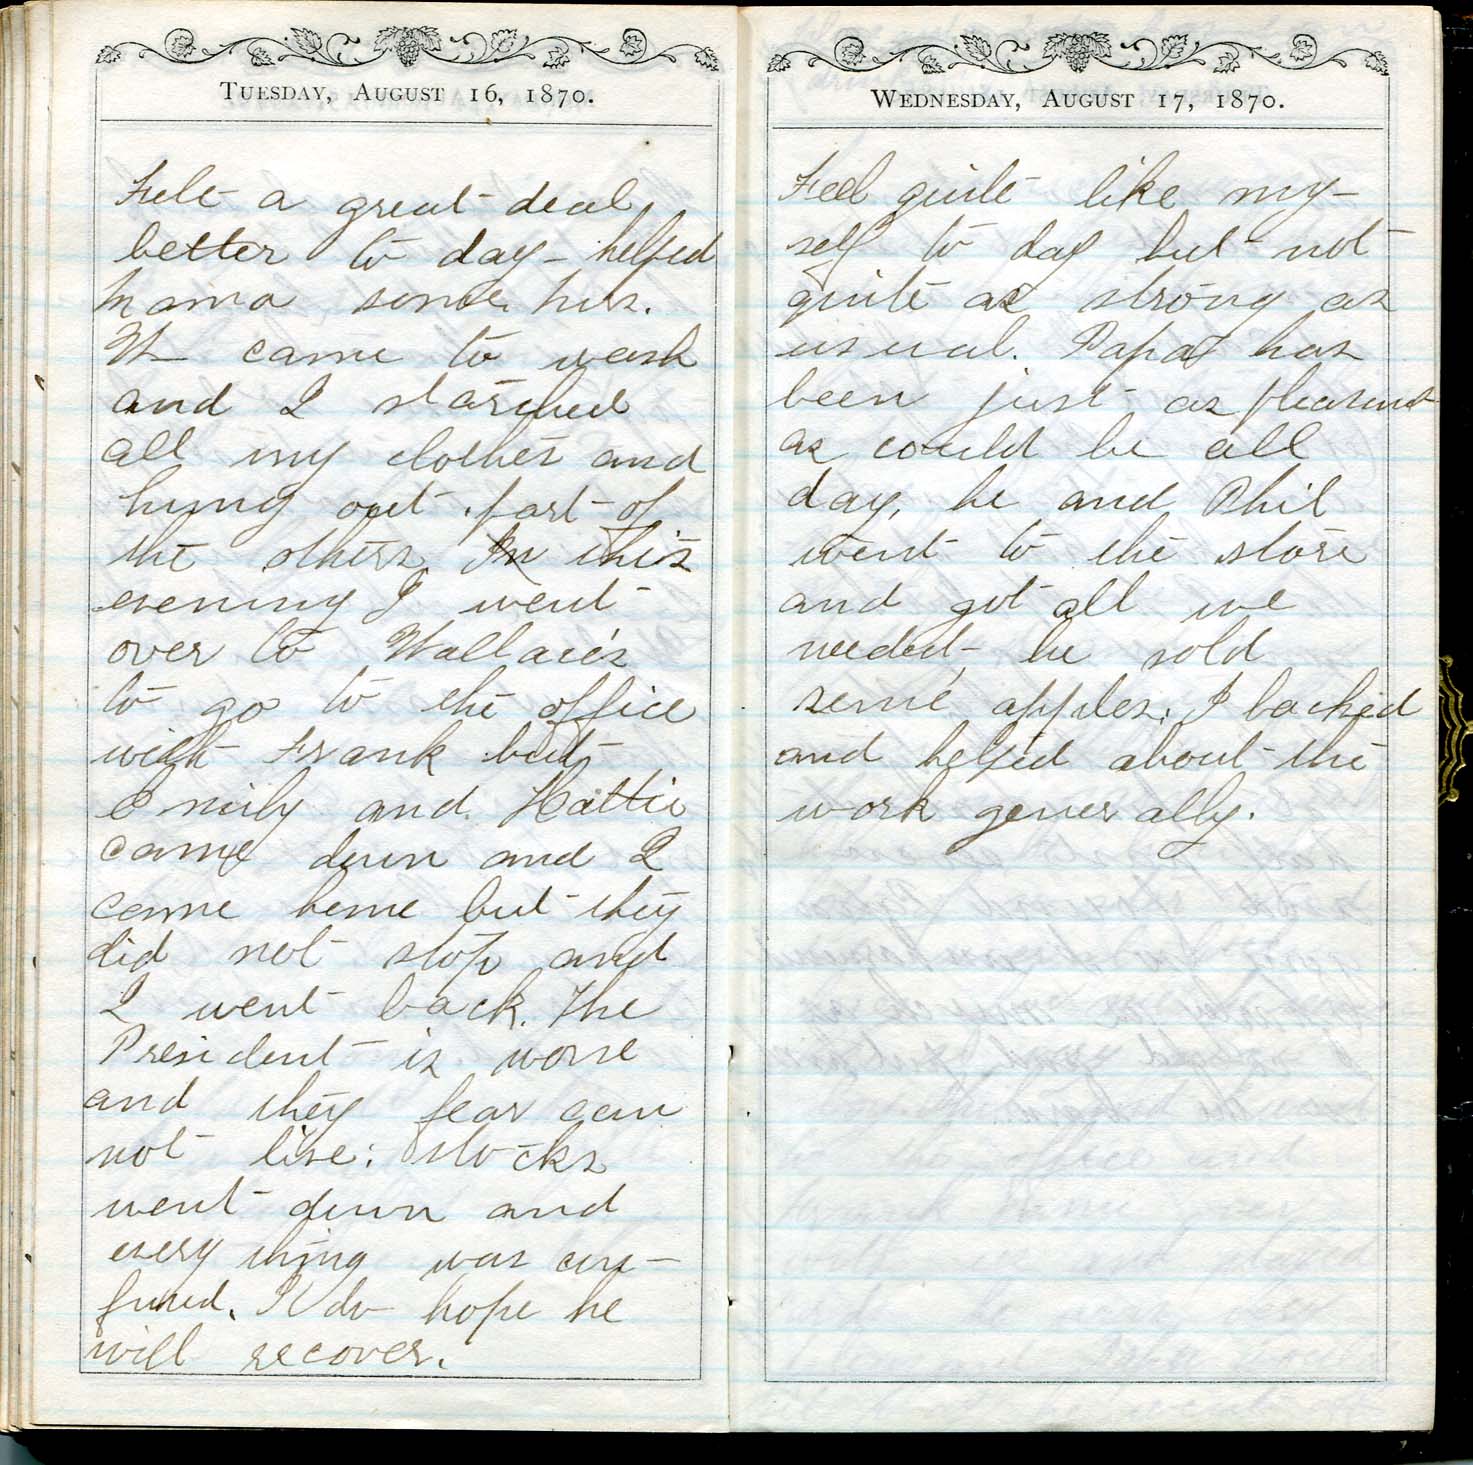 TUESDAY, AUGUST 16, 1870.
Felt a great deal
better to day – helped
Mama some, hers.
came to wash
and I starched
all my clothes and
hung out part of
the others In this
evening I went
over to Wallace's
to go to the office
with Frank but
Emily and Hattie
came down and I
came home but they
did not stop and
I went back. The
President is worse
and they fear can
not live: stocks
went down and
every thing was con-
fused. I do hope he
will recover.
WEDNESDAY, AUGUST 17, 1870.
Feel quite like my-
self to day but not
quite as strong as
usual. Papa has
been just as pleasant
as could be all
day, he and Phil
went to the store
and got all we
needed – he sold
some apples; I backed
and helped about the
work generally.